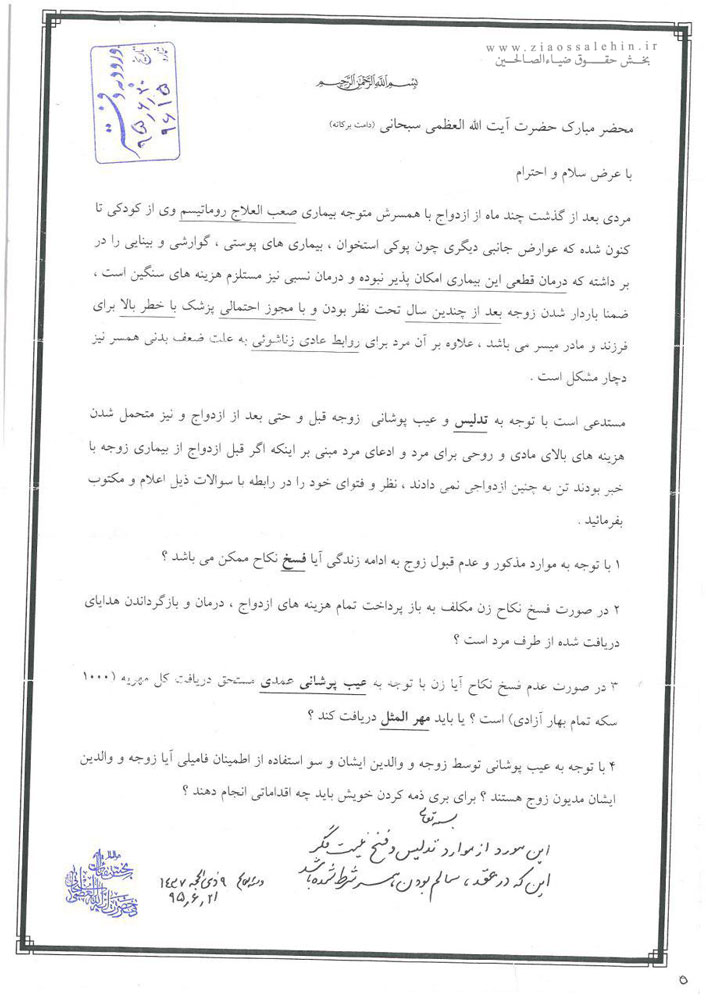 www.ziaossalehin.ir
بخش حقوق ضیاءالصالحین
بسم الله الرحمن الرحیم
ورود به دفتر
تاریخ ۹۵٫۶٫۲۰
شماره ۹۶۱۵
محضر مبارک حضرت آیت الله العظمی سبحانی (دامت برکاته)
با عرض سلام و احترام
مردی بعد از گذشت چند ماه از ازدواج با همسرش متوجه بیماری صعب العلاج روماتیسم وی از کودکی تا
کنون شده که عوارض جانبی دیگری چون پوکی استخوان ، بیماری های پوستی ، گوارشی و بینایی را در
بر داشته که درمان قطعی این بیماری امکان پذیر نبوده و درمان نسبی نیز مستلزم هزینه های سنگین است ،
ضمنا باردار شدن زوجه بعد از چندین سال تحت نظر بودن و با مجوز احتمالی پزشک با خطر بالا برای
فرزند و مادر میسر می باشد ، علاوه بر آن مرد برای روابط عادی زناشوئی به علت ضعف بدنی همسر نیز
دچار مشکل است .
مستدعی است با توجه به تدلیس و عیب پوشانی زوجه قبل و حتی بعد از ازدواج و نیز متحمل شدن
هزینه های بالای مادی و روحی برای مرد و ادعای مرد مبنی بر اینکه اگر قبل ازدواج از بیماری زوجه با
خبر بودند تن به چنین ازدواجی نمی دادند ، نظر و فتوای خود را در رابطه با سوالات ذیل اعلام و مکتوب
بفرمائید .
۱ با توجه به موارد مذکور و عدم قبول زوج به ادامه زندگی آیا فسخ نکاح ممکن می باشد ؟
۲ در صورت فسخ نکاح زن مکلف به باز پرداخت تمام هزینه های ازدواج ، درمان و بازگرداندن هدایای
دریافت شده از طرف مرد است ؟
۳ در صورت عدم فسخ نکاح آیا زن با توجه به عیب پوشانی عمدی مستحق دریافت کل مهریه (۱۰۰۰
سکه تمام بهار آزادی) است ؟ یا باید مهر المثل دریافت کند ؟
۴ با توجه به عیب پوشانی توسط زوجه و والدین ایشان و سو استفاده از اطمینان فامیلی آیا زوجه و والدین
ایشان مدیون زوج هستند ؟ برای بری ذمه کردن خویش باید چه اقداماتی انجام دهند ؟
بسمه تعالی
این مورد از موارد تدلیس و فسخ نیست مگر
این که در عقد ، سالم بودن همسر شرط شده باشد
۹ ذی الحجه ۱۴۳۷
۹۵٫۶٫۲۱
۵